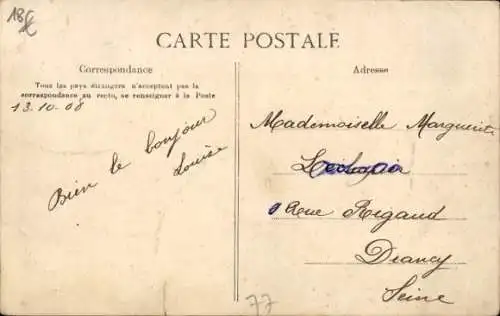 18€
CARTE POSTALE
Correspondance
Tous les pays étrangers n'acceptent pas la
correspondance au recto, se renseigner à la Poste
13-10-08
Bien le bonjour
Louise
Adresse
Mademoiselle Marguerite
Rue Rigaud
Drancy
Seine
77